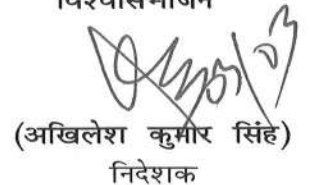 विश्वासभाजन
(अखिलेश कुमार सिंह)
निदेशक